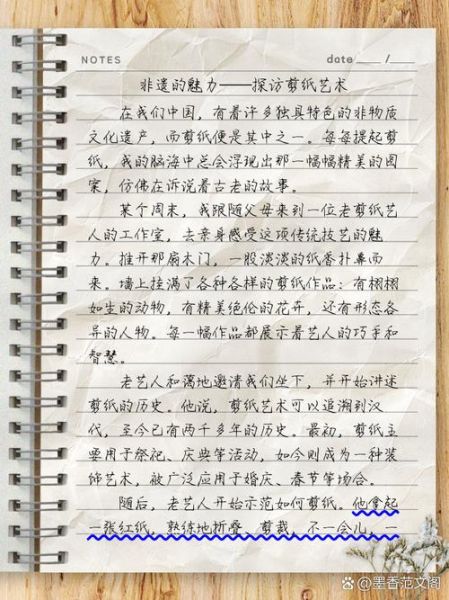 NOTES
date ___ / ___
非遗的魅力——探访剪纸艺术
在我们中国，有着许多独具特色的非物质
文化遗产，而剪纸便是其中之一。每每提起剪
纸，我的脑海中总会浮现出那一幅幅精美的图
案，仿佛在诉说着古老的故事。
某个周末，我跟随父母来到一位老剪纸艺
人的工作室，去亲身感受这项传统技艺的魅
力。推开那扇木门，一股淡淡的纸香扑鼻而
来。墙上挂满了各种各样的剪纸作品：有栩栩
如生的动物，有精美绝伦的花卉，还有形态各
异的人物。每一幅作品都展示着艺人的巧手和
智慧。
老艺人和蔼地邀请我们坐下，并开始讲述
剪纸的历史。他说，剪纸艺术可以追溯到汉
代，至今已有两千多年的历史。最初，剪纸主
要用于祭祀、庆典等活动，如今则成为一种装
饰艺术，被广泛应用于婚庆、春节等场合。
随后，老艺人开始示范如何剪纸。他拿起
一张红纸，熟练地折叠、剪裁，不一会儿，一
@墨香范文阁